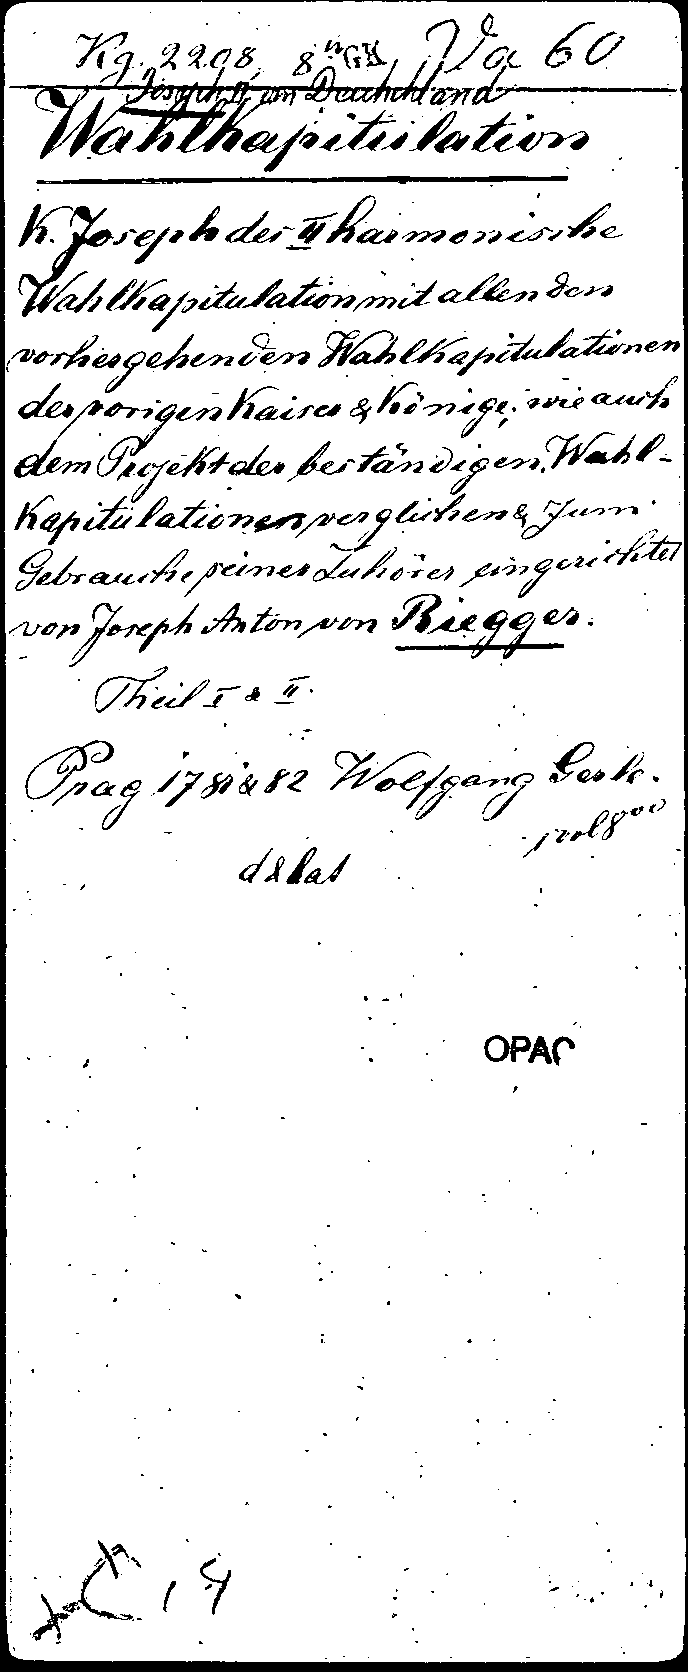 Kg. 2208, 8° GK Va 60
Joseph II, von Deutschland
Wahlkapitulation
K. Joseph des II harmonische
Wahlkapitulation mit allen den
vorhergehenden Wahlkapitulationen
der vorigen Kaiser & Könige, wie auch
dem Projekt der beständigen Wahl-
kapitulationen verglichen & zum
Gebrauche seiner Zuhörer eingerichtet
von Joseph Anton von Riegger.
Theil I & II.
Prag 1781 & 82 Wolfgang Gerle.
1 vol 8°
d & lat
OPAC
14